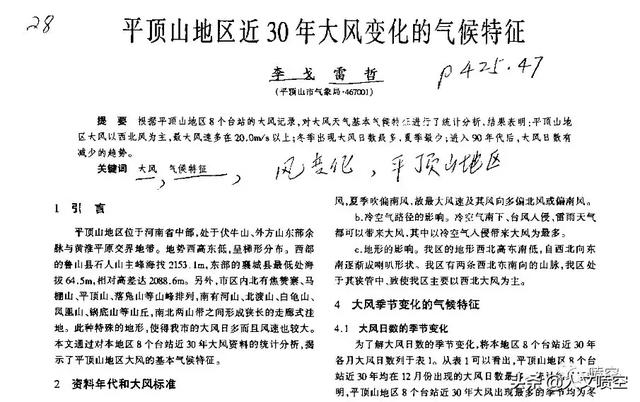 28
平顶山地区近30年大风变化的气候特征
李戈 雷哲
P425.47
(平顶山市气象局·467001)
提 要 根据平顶山地区8个台站的大风记录,对大风天气基本气候特征进行了统计分析。结果表明:平顶山地
区大风以西北风为主,最大风速多在20.0m/s以上;冬季出现大风日数最多,夏季最少;进入90年代后,大风日数有
减少的趋势。
关键词 大风 气候特征 风变化,平顶山地区
1 引 言
平顶山地区位于河南省中部,处于伏牛山、外方山东部余
脉与黄淮平原交界地带。地势西高东低,呈梯形分布。西部
的鲁山县石人山主峰海拔2153.1m,东部的襄城县最低处海
拔64.5m,相对高差达2088.6m。另外,市区内北有焦赞寨、马
棚山、平顶山、落凫山等山峰排列,南有河山、北渡山、白龟山、
凤凰山、锅底山等山丘,南北两山带之间形成狭长的走廊式洼
地。此种特殊的地形,使得我市的大风日多而且风速也较大。
本文通过对本地区8个台站近30年大风资料的统计分析,揭
示了平顶山地区大风的基本气候特征。
2 资料年代和大风标准
风,夏季吹偏南风,故最大风速及其风向多偏北风或偏南风。
b.冷空气路径的影响。冷空气南下、台风入侵、雷雨天气
都可以带来大风,其中以冷空气入侵带来大风为最多。
c.地形的影响。我区的地形西北高东南低,自西北向东
南逐渐成喇叭形状。我区有两条西北东南向的山脉,我区处
于其狭管中,致使我区主要以西北大风为主。
4 大风季节变化的气候特征
4.1 大风日数的季节变化
为了解大风日数的季节变化,将本地区8个台站近30年
各月大风日数列于表1。从表1可以看出,平顶山地区8个台
站近30年均在12月份出现的大风日数最
明,平顶山地区8个台站近30年大风出现最多的季节均为冬
喷空
头条@人文喷空